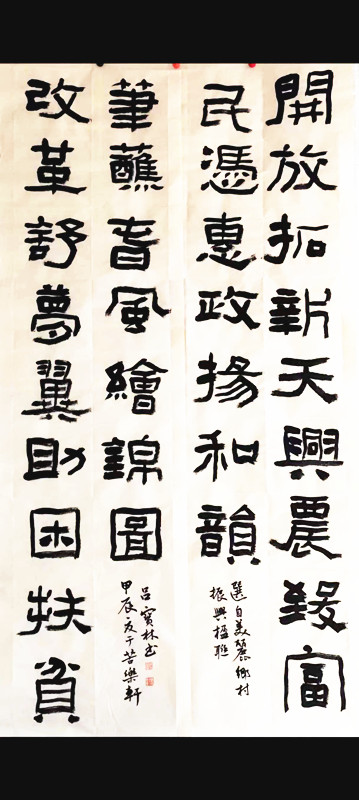 開放拓新天興農致富
民憑惠政揚和韻
選自美麗鄉村
振興楹聯
改革舒夢翼助困扶貧
筆蘸春風繪錦圖
甲辰夏于苦樂軒
呂寶林书